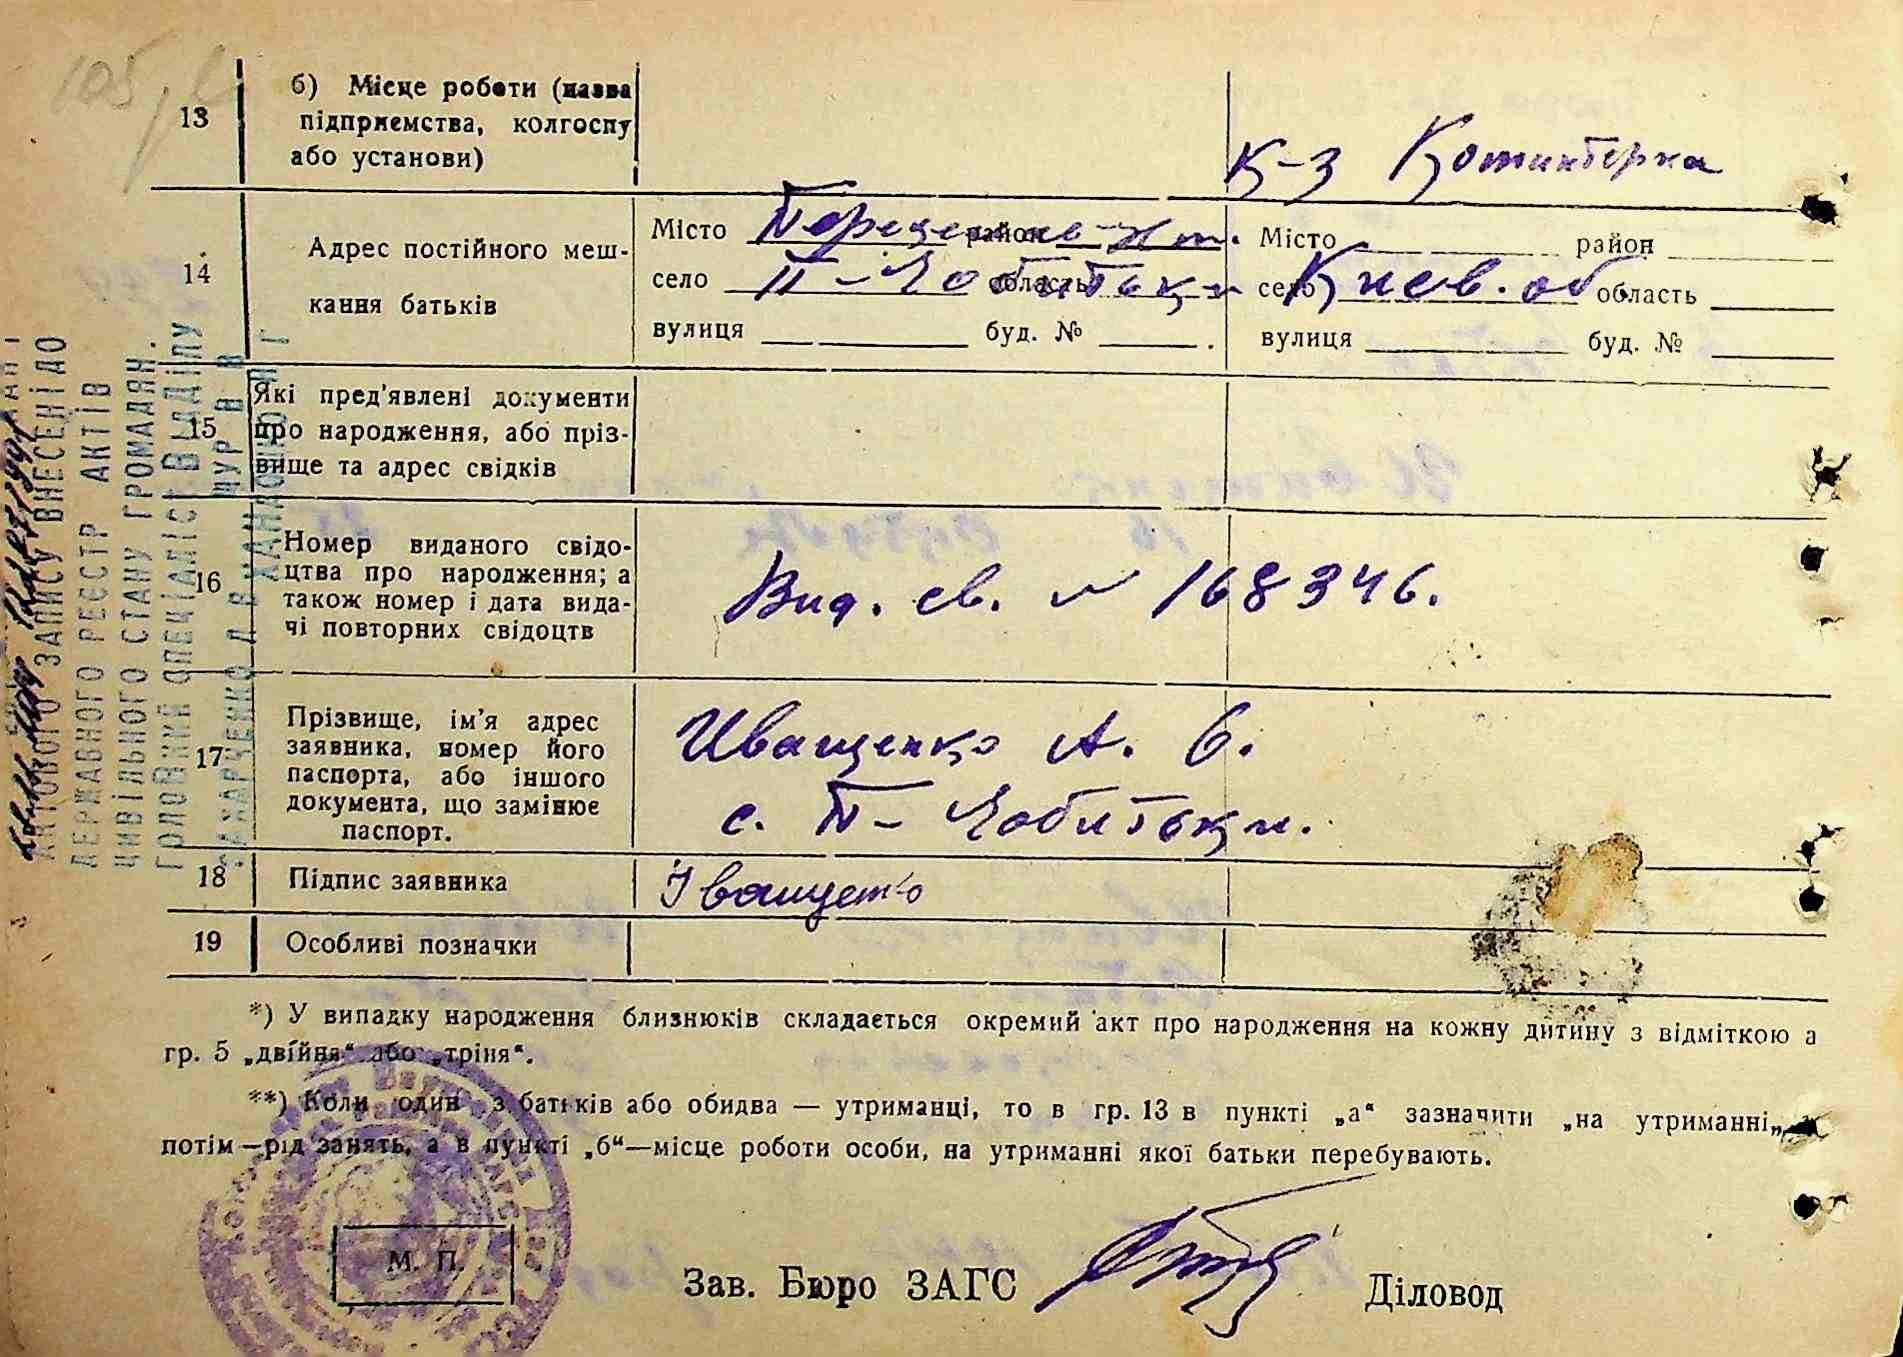 105
13
б) Місце роботи (назва
підприємства, колгоспу
або установи)
К-з Комінтерна
14
Адрес постійного меш-
кання батьків
Місто район
село П-Чобітьки область
вулиця буд. №
Місто район
село Киев. об область
вулиця буд. №
15
Які пред'явлені документи
про народження, або пріз-
вище та адрес свідків
16
Номер виданого свідо-
цтва про народження; а
також номер і дата вида-
чі повторних свідоцтв
Вид. св. № 168346.
17
Прізвище, ім'я адрес
заявника, номер його
паспорта, або іншого
документа, що замінює
паспорт.
Иващенко А. С.
с. П-Чобітьки.
18
Підпис заявника
Іващенко
19
Особливі позначки
*) У випадку народження близнюків складається окремий акт про народження на кожну дитину з відміткою а
гр. 5 „двійня" або „тріня".
**) Коли один з батьків або обидва — утриманці, то в гр. 13 в пункті „а" зазначити „на утриманні„
потім—рід занять, а в пункті „б"—місце роботи особи, на утриманні якої батьки перебувають.
М. П.
Зав. Бюро ЗАГС
Діловод
АКТОВОГО ЗАПИСУ ВНЕСЕНІ ДО
ДЕРЖАВНОГО РЕЄСТР АКТІВ
ЦИВІЛЬНОГО СТАНУ ГРОМАДЯН.
ГОЛОВНИЙ СПЕЦІАЛІСТ ВІДДІЛУ